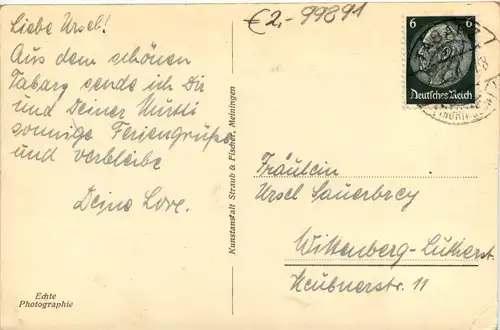 € 2,- 99891
Liebe Ursel!
Aus dem schönen
Tabarz sende ich Dir
und Deiner Mutti
sonnige Feriengrüße
und verbleibe
Deine Lore.
Echte
Photographie
Kunstanstalt Straub & Fischer, Meiningen
6 6
Deutsches Reich
Fräulein
Ursel Sauerbrey
Wittenberg-Lutherst.
Heubnerstr. 11